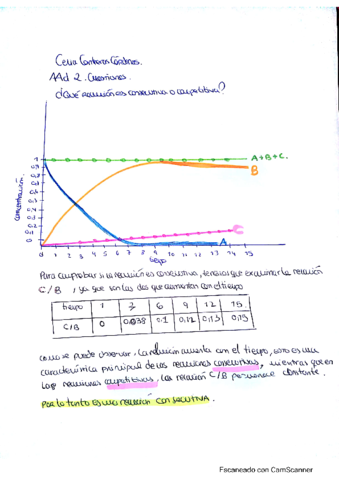 Celia Contreras Córdenas.
AAd 2. Cuestiones.
¿Qué reacción es consecutiva o competitiva?
Concentración.
1
0,9
0,8
0,7
0,6
0,5
0,4
0,3
0,2
0,1
0
A+B+C.
B
C
A
0 1 2 3 4 5 6 7 8 9 10 11 12 13 14 15
tiempo
Para comprobar si la reacción es consecutiva, tenemos que examinar la relación
C/B, ya que son las dos que aumentan con el tiempo
tiempo 1 3 6 9 12 15
C/B 0 0,038 0,1 0,12 0,15 0,19
como se puede observar, la relación aumenta con el tiempo, esto es una
característica principal de las reacciones consecutivas, mientras que en
las reacciones competitivas, la relación C/B permanece constante.
Por lo tanto es una reacción CONSECUTIVA.
Escaneado con CamScanner